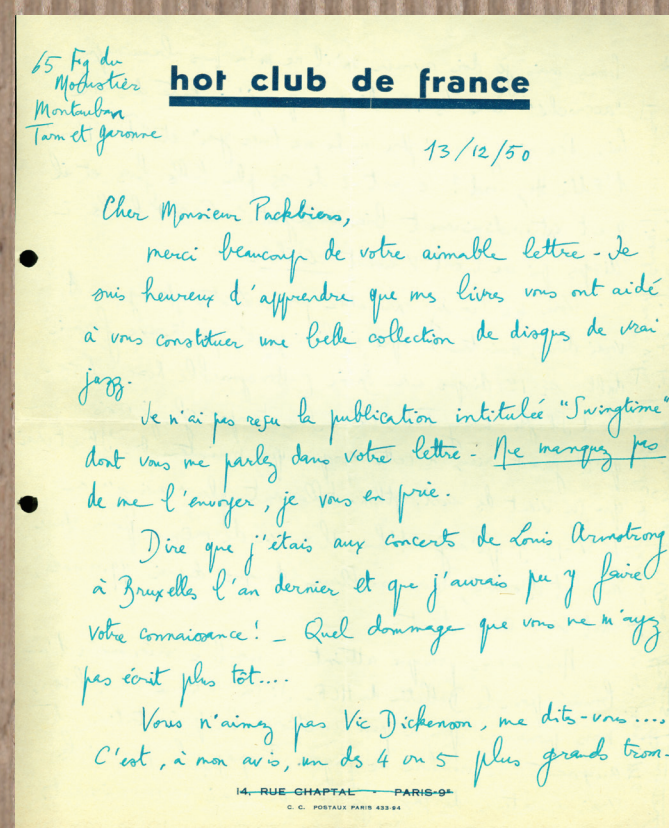 65 Fg du
Moustier
Montauban
Tarn et Garonne
hot club de france
13/12/50
Cher Monsieur Packbiers,
merci beaucoup de votre aimable lettre - Je
suis heureux d'apprendre que mes livres vous ont aidé
à vous constituer une belle collection de disques de vrai
jazz.
Je n'ai pas reçu la publication intitulée "Swingtime"
dont vous me parlez dans votre lettre - Ne manquez pas
de me l'envoyer, je vous en prie.
Dire que j'étais aux concerts de Louis Armstrong
à Bruxelles l'an dernier et que j'aurais pu y faire
votre connaissance! - Quel dommage que vous ne m'ayez
pas écrit plus tôt....
Vous n'aimez pas Vic Dickenson, me dites-vous....
C'est, à mon avis, un des 4 ou 5 plus grands trom-
14, RUE CHAPTAL - PARIS-9e
C. C. POSTAUX PARIS 433-94